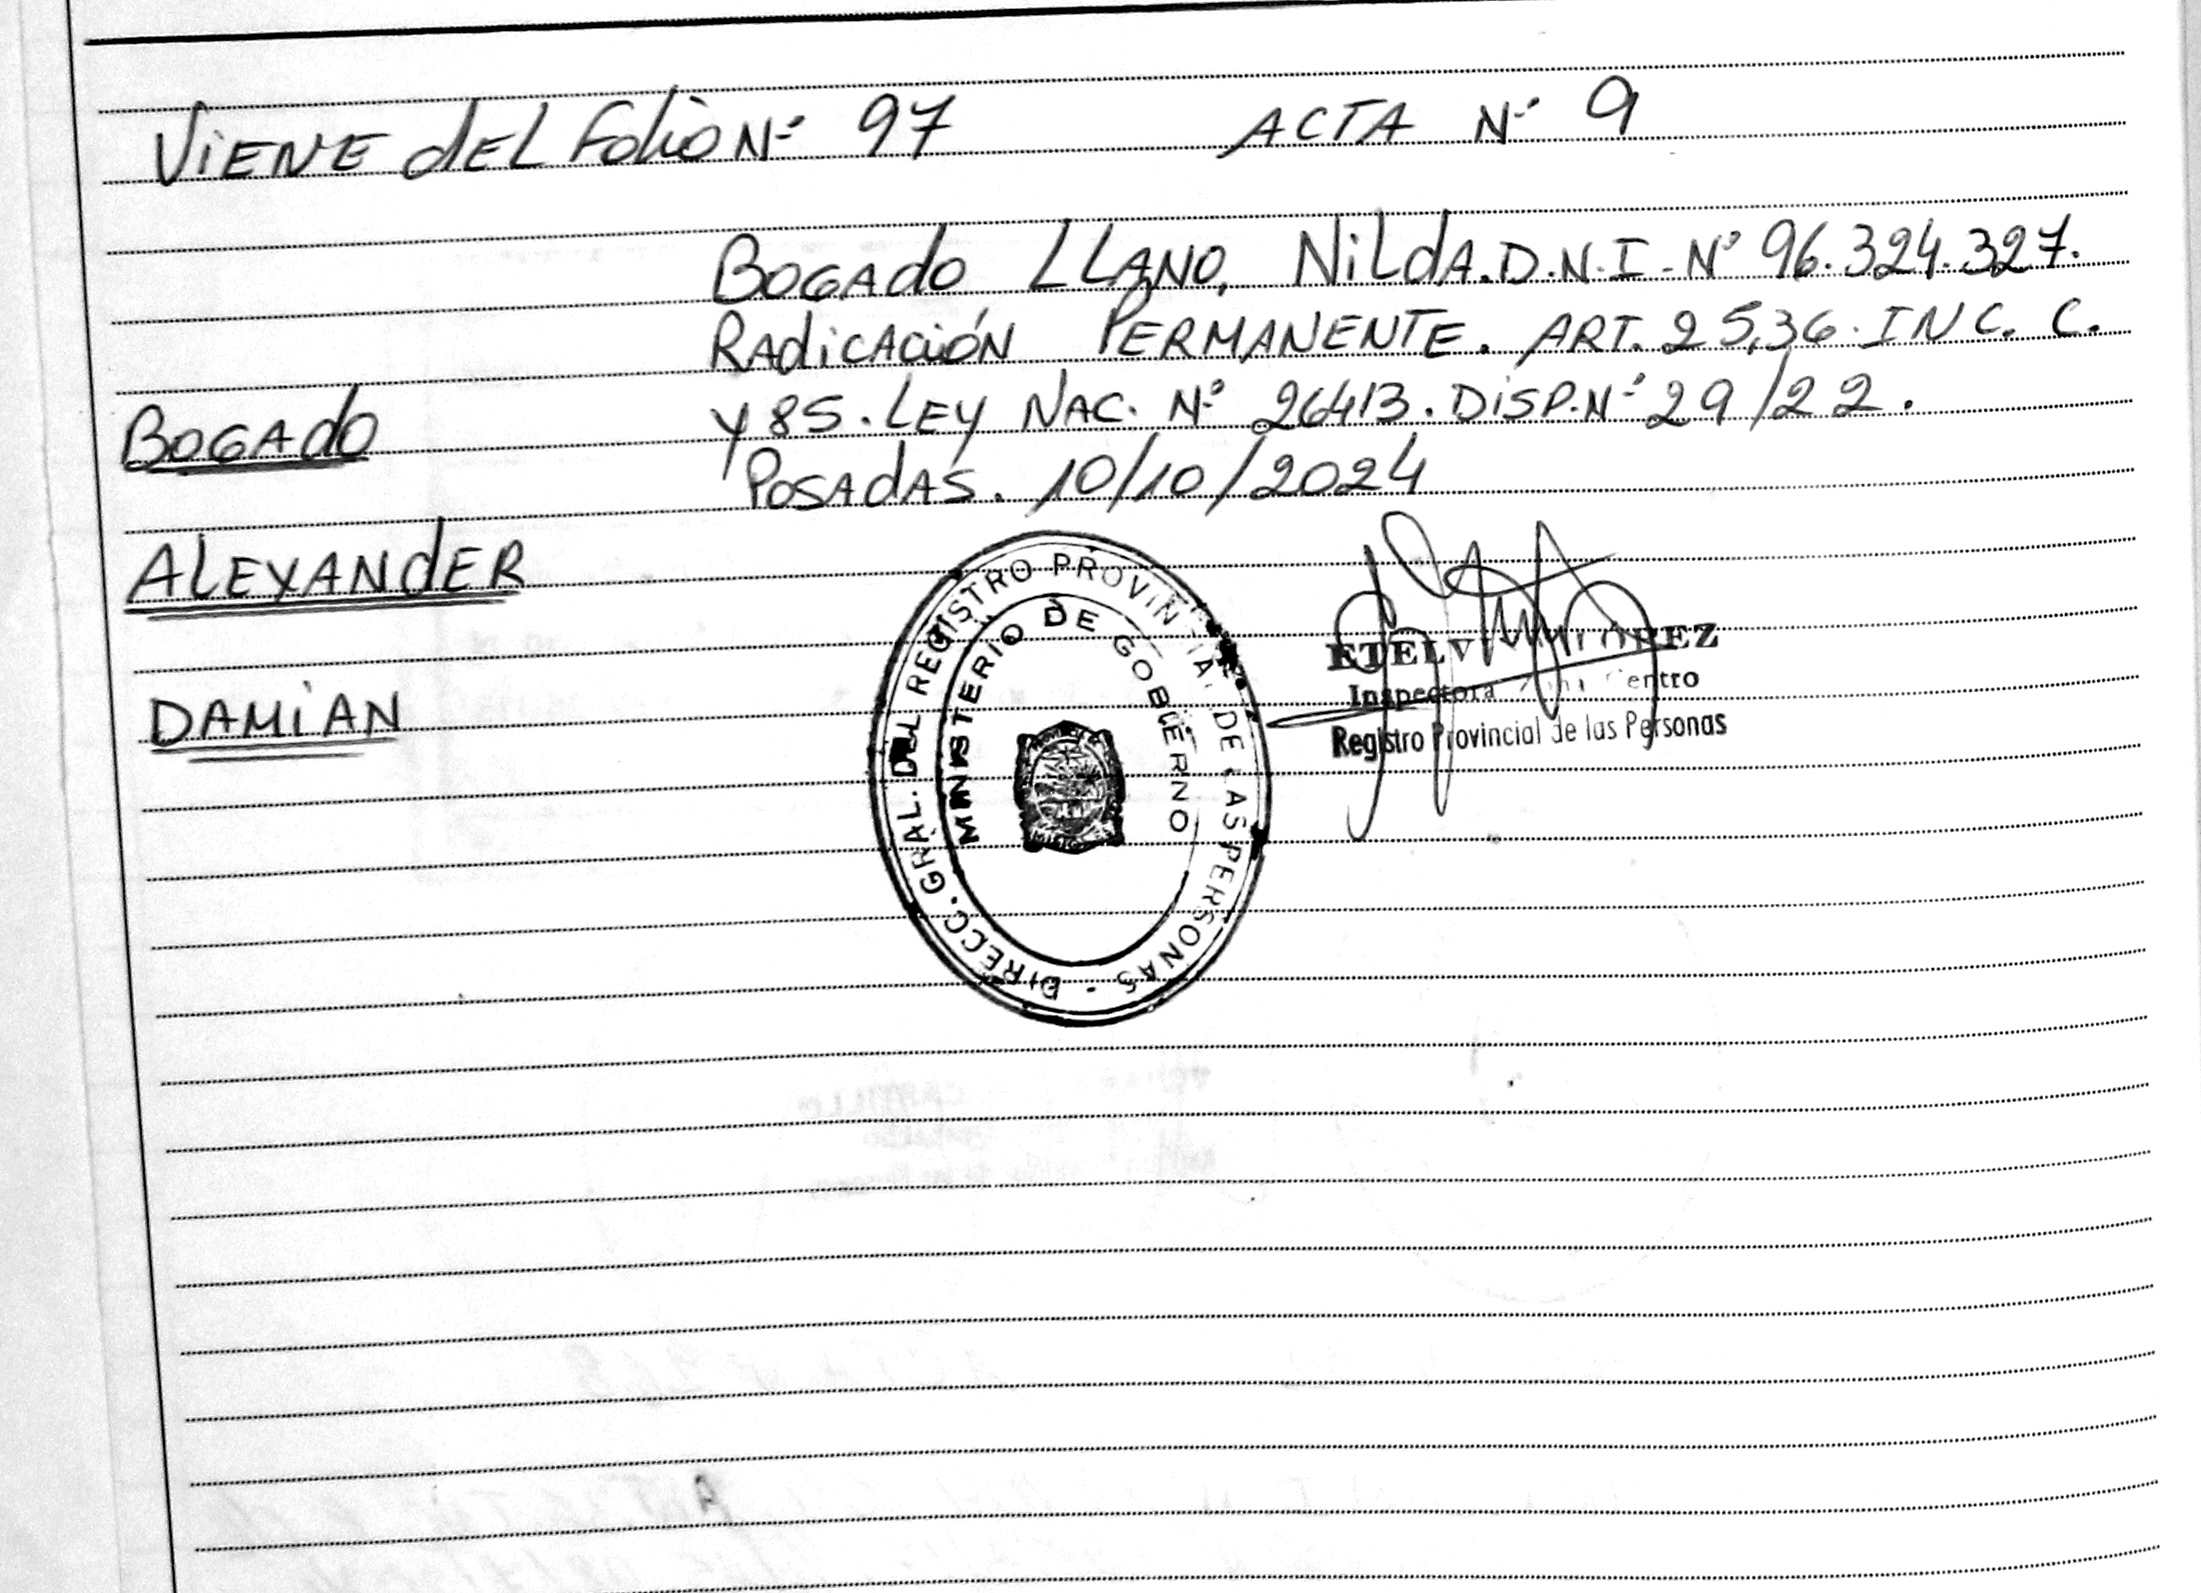 ViENE dEL Folio Nº 97 ACTA Nº 9
BOGAdo LLANO, NiLdA. D.N.I. Nº 96.324.327.
RAdicAción PERMANENTE. ART. 25,36. INC. C.
Y 85. LEY NAC. Nº 26413. DiSP. Nº 29/22.
POSAdAS. 10/10/2024
BOGAdo
ALEXANdER
DAMiAN
DIRECC. GRAL. DEL REGISTRO PROVINCIAL DE LAS PERSONAS -
MINISTERIO DE GOBIERNO
Inspectora Centro
Registro Provincial de las Personas